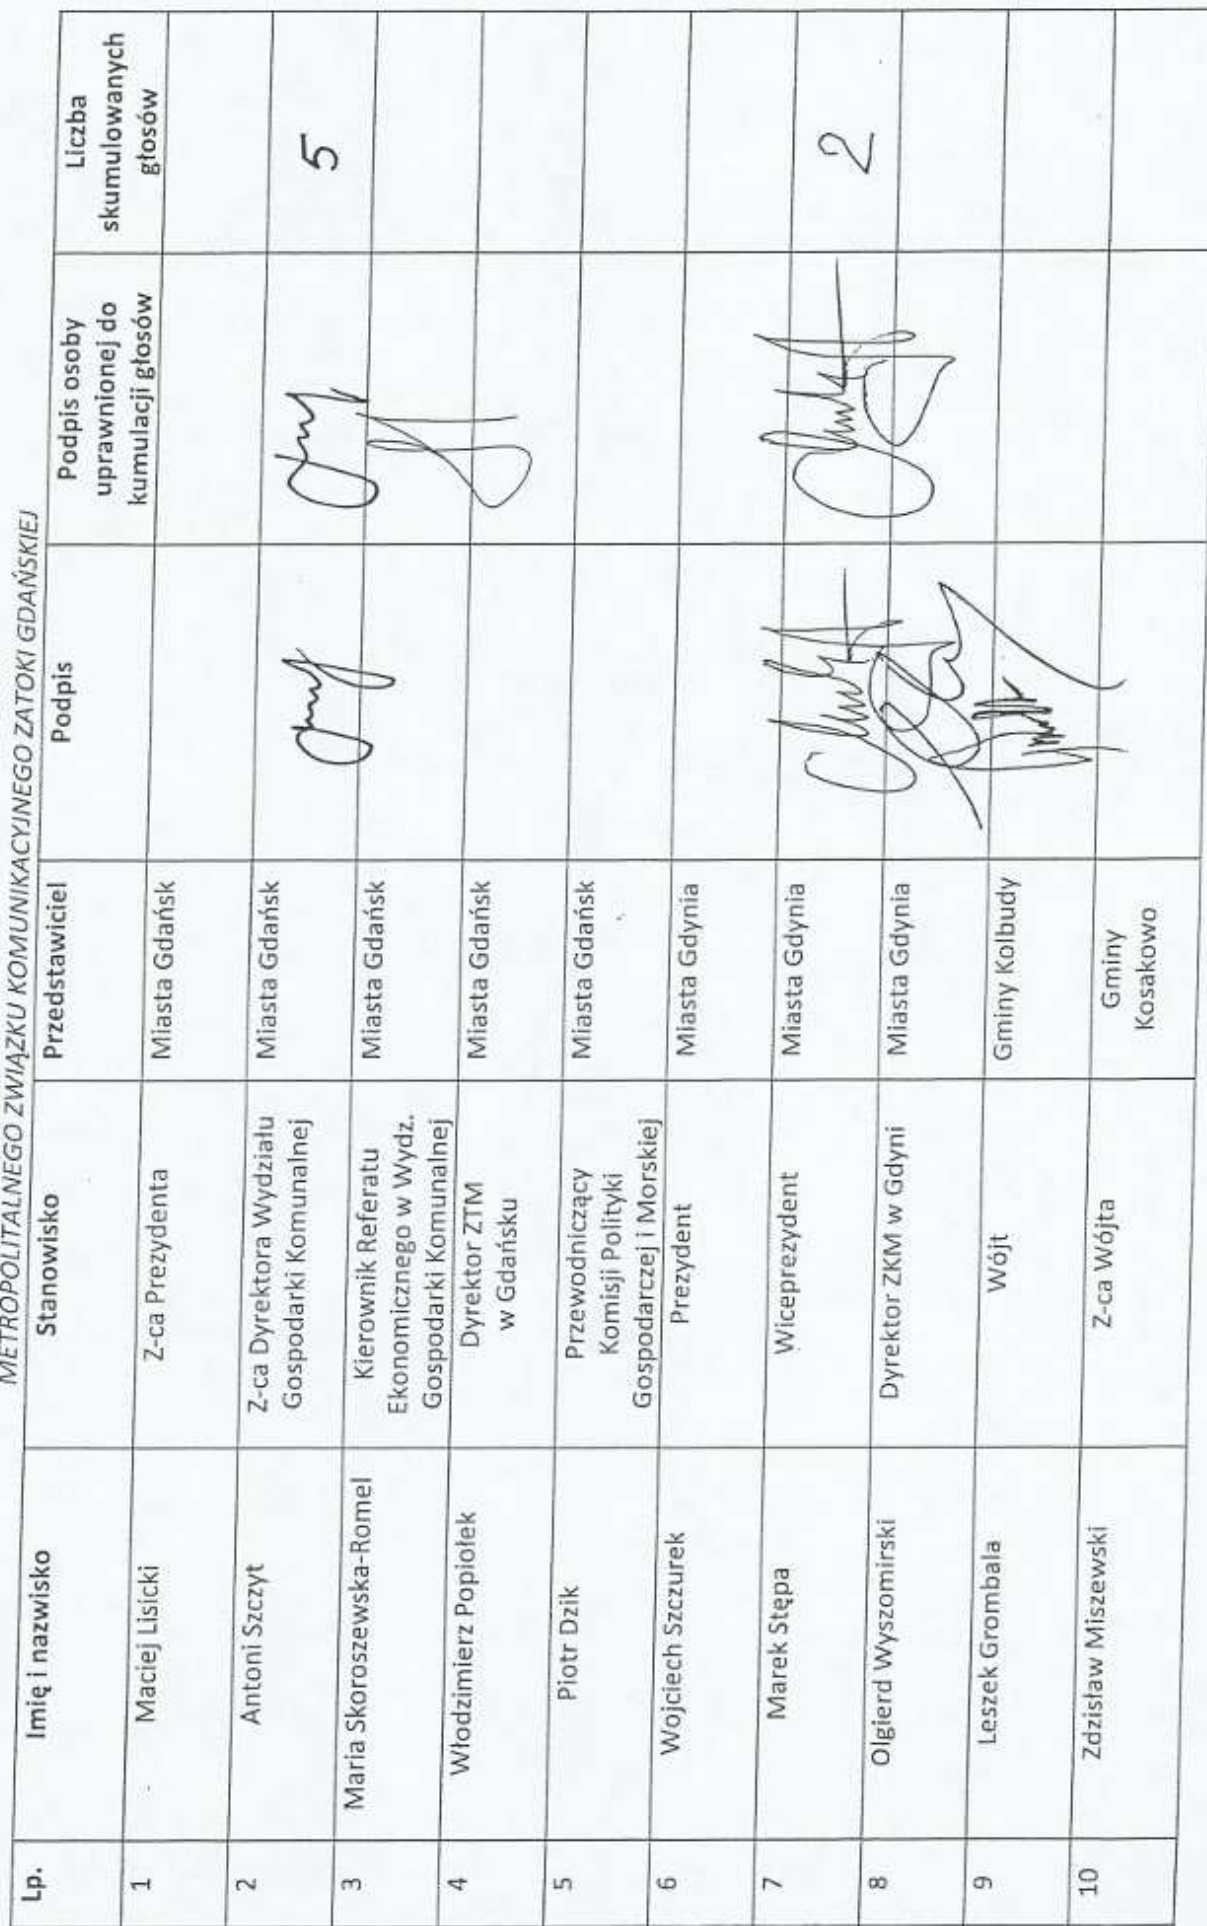 METROPOLITALNEGO ZWIĄZKU KOMUNIKACYJNEGO ZATOKI GDAŃSKIEJ
Lp.
Imię i nazwisko
Stanowisko
Przedstawiciel
Podpis
Podpis osoby
uprawnionej do
kumulacji głosów
Liczba
skumulowanych
głosów
1
Maciej Lisicki
Z-ca Prezydenta
Miasta Gdańsk
2
Antoni Szczyt
Z-ca Dyrektora Wydziału
Gospodarki Komunalnej
Miasta Gdańsk
5
3
Maria Skoroszewska-Romel
Kierownik Referatu
Ekonomicznego w Wydz.
Gospodarki Komunalnej
Miasta Gdańsk
4
Włodzimierz Popiołek
Dyrektor ZTM
w Gdańsku
Miasta Gdańsk
5
Piotr Dzik
Przewodniczący
Komisji Polityki
Gospodarczej i Morskiej
Miasta Gdańsk
6
Wojciech Szczurek
Prezydent
Miasta Gdynia
7
Marek Stępa
Wiceprezydent
Miasta Gdynia
2
8
Olgierd Wyszomirski
Dyrektor ZKM w Gdyni
Miasta Gdynia
9
Leszek Grombala
Wójt
Gminy Kolbudy
10
Zdzisław Miszewski
Z-ca Wójta
Gminy
Kosakowo